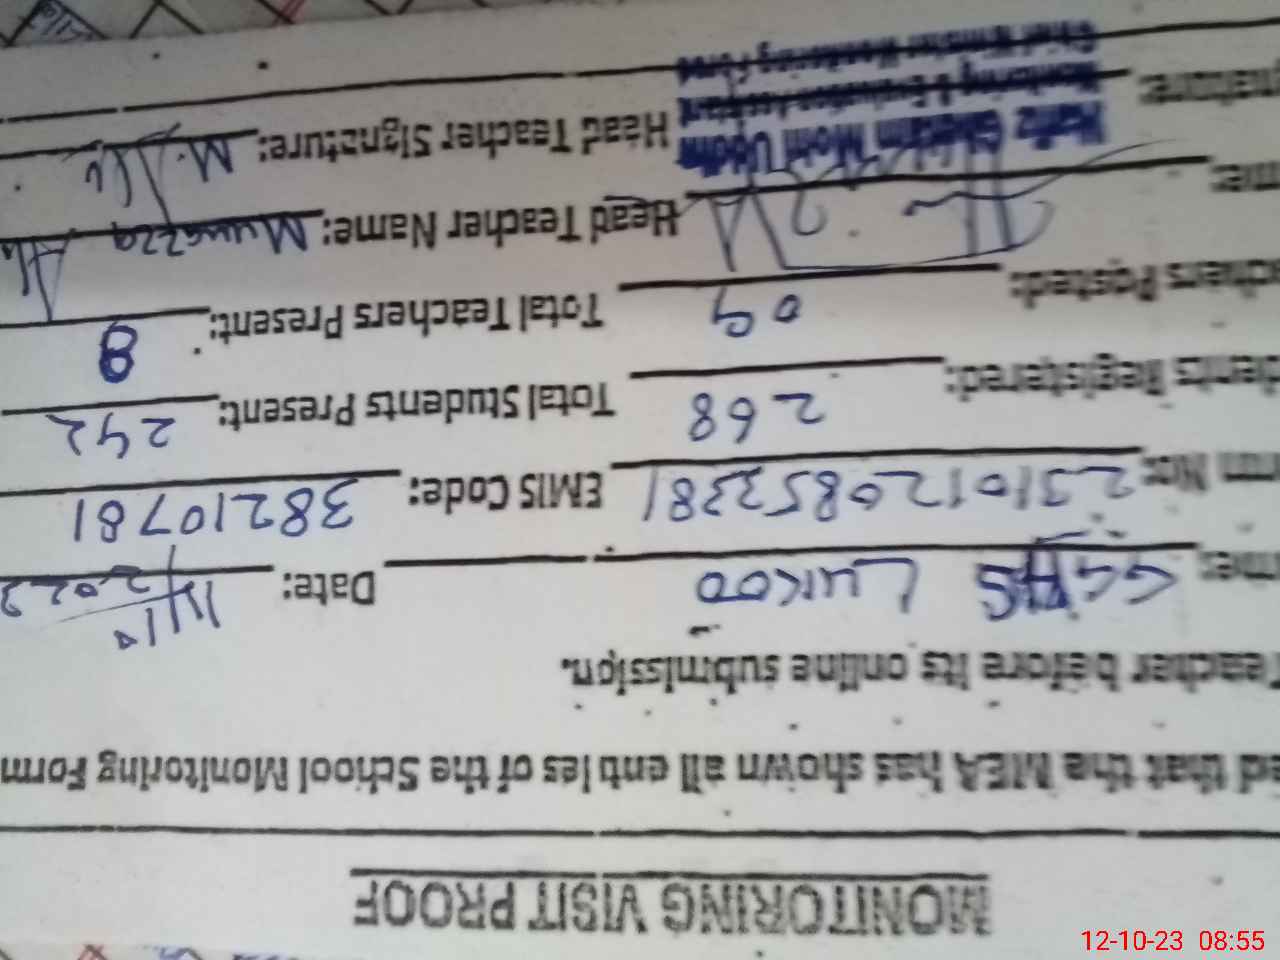 MONITORING VISIT PROOF
ed that the MEA has shown all entries of the School Monitoring Form
Teacher before its online submission.
me: GGHS LUKOO Date: 2023
rm No: 2310120853381 EMIS Code: 38210781
dents Registered: 268 Total Students Present: 242
chers Posted: 09 Total Teachers Present: 8
me: Head Teacher Name: Munazza
nature: Head Teacher Signature:
Monitoring & Evaluation Assistant
Chief Minister Monitoring Force
12-10-23 08:55